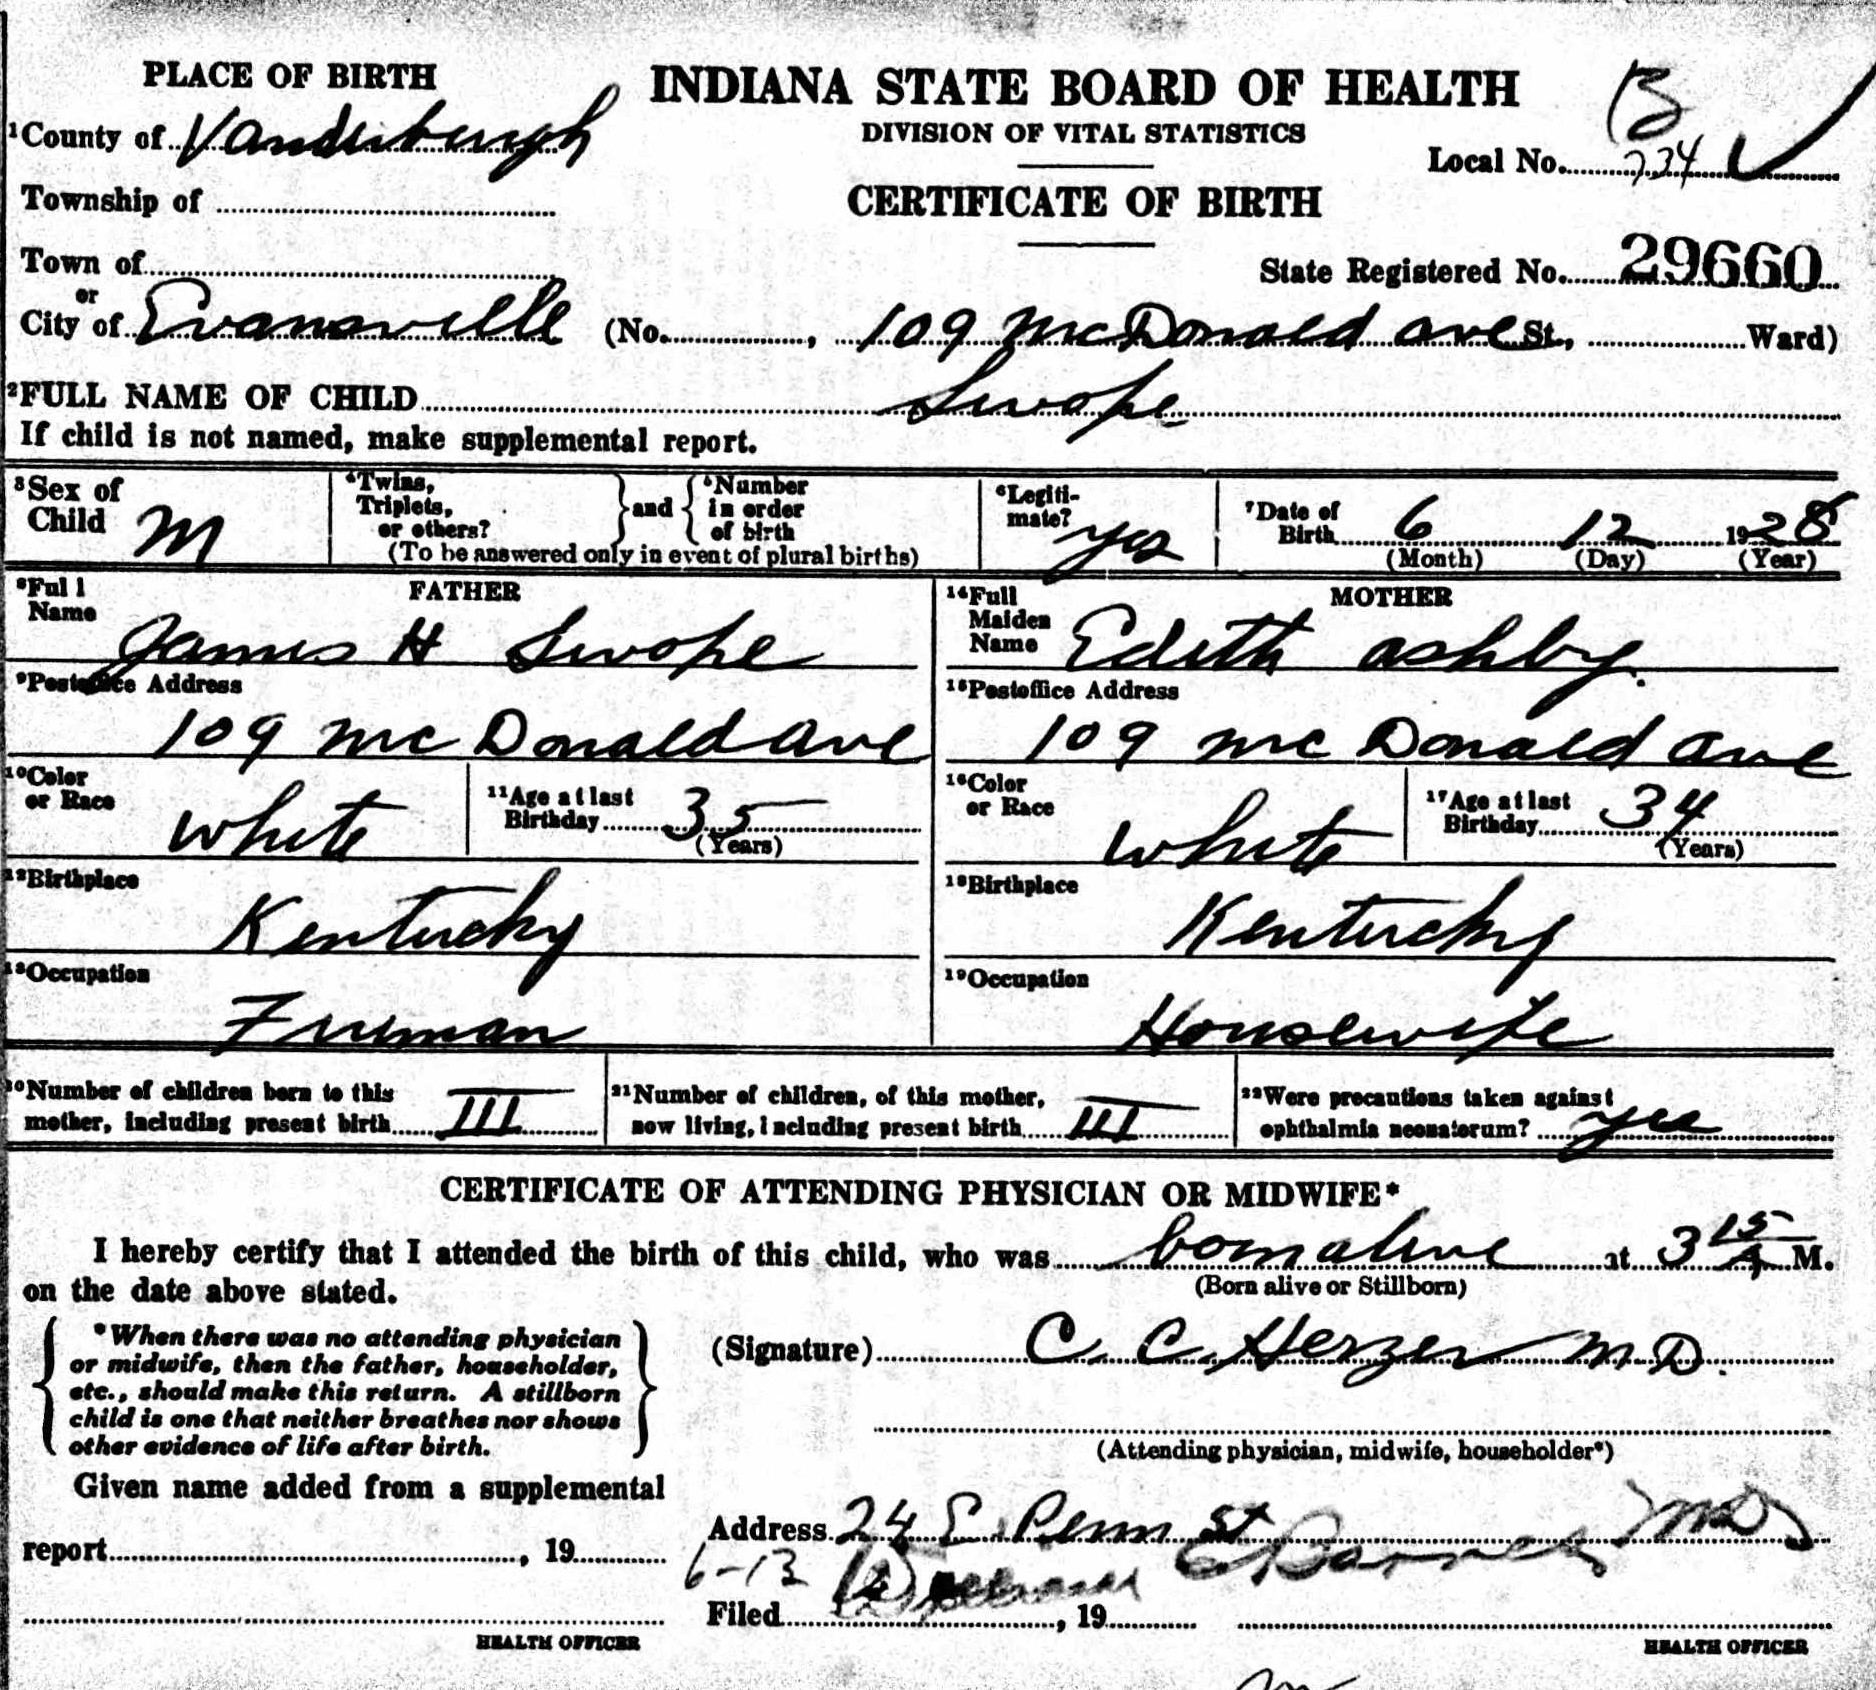 PLACE OF BIRTH
INDIANA STATE BOARD OF HEALTH
B
¹County of Vanderburgh
DIVISION OF VITAL STATISTICS
Local No. 734
Township of
CERTIFICATE OF BIRTH
Town of
State Registered No. 29660
or
City of Evansville (No. , 109 McDonald ave St., Ward)
²FULL NAME OF CHILD Swope
If child is not named, make supplemental report.
³Sex of Child M
⁴Twins, Triplets, or others? } and { ⁵Number in order of birth
(To be answered only in event of plural births)
⁶Legiti-mate? yes
⁷Date of Birth 6 12 1928
(Month) (Day) (Year)
FATHER
⁸Full Name James H Swope
⁹Postoffice Address
109 Mc Donald ave
¹⁰Color or Race white
¹¹Age at last Birthday 35 (Years)
¹²Birthplace
Kentucky
¹³Occupation
Fireman
MOTHER
¹⁴Full Maiden Name Edith ashby.
¹⁵Postoffice Address
109 Mc Donald ave
¹⁶Color or Race white
¹⁷Age at last Birthday 34 (Years)
¹⁸Birthplace
Kentucky
¹⁹Occupation
Housewife
²⁰Number of children born to this mother, including present birth III
²¹Number of children, of this mother, now living, including present birth III
²²Were precautions taken against ophthalmia neonatorum? yes
CERTIFICATE OF ATTENDING PHYSICIAN OR MIDWIFE*
I hereby certify that I attended the birth of this child, who was born alive at 3 15 A M.
(Born alive or Stillborn)
on the date above stated.
*When there was no attending physician
or midwife, then the father, householder,
etc., should make this return. A stillborn
child is one that neither breathes nor shows
other evidence of life after birth.
(Signature) C. C. Herzer M.D.
(Attending physician, midwife, householder*)
Given name added from a supplemental
report , 19
HEALTH OFFICER
Address 24 E. Penn St
6-13 William E Barnes MD
Filed , 19
HEALTH OFFICER